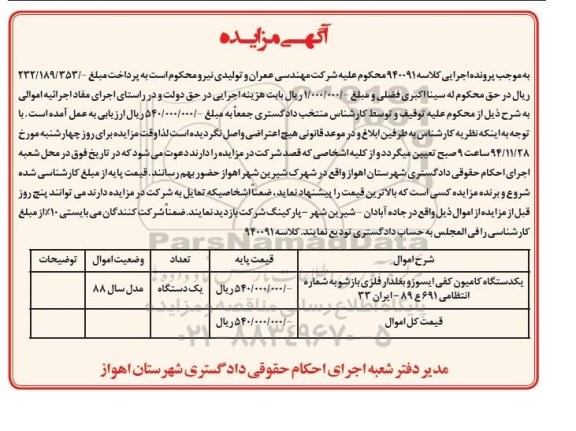 آگهی مزایده
به موجب پرونده اجرایی کلاسه ۹۴۰۰۹۱ محکوم علیه شرکت مهندسی عمران و تولیدی نیرو محکوم است به پرداخت مبلغ -/۲۳۲/۱۸۹/۳۵۳
ریال در حق محکوم له سینا اکبری فضلی و مبلغ -/۱/۰۰۰/۰۰۰ ریال بابت هزینه اجرایی در حق دولت و در راستای اجرای مفاد اجرائیه اموالی
به شرح ذیل از محکوم علیه توقیف و توسط کارشناس منتخب دادگستری جمعاً به مبلغ -/۵۴۰/۰۰۰/۰۰۰ ریال ارزیابی به عمل آمده است. با
توجه به اینکه نظریه کارشناس به طرفین ابلاغ و در موعد قانونی هیچ اعتراضی واصل نگردیده است لذا وقت مزایده برای روز چهارشنبه مورخ
۹۴/۱۱/۲۸ ساعت ۹ صبح تعیین میگردد و از کلیه اشخاصی که قصد شرکت در مزایده را دارند دعوت می شود که در تاریخ فوق در محل شعبه
اجرای احکام حقوقی دادگستری شهرستان اهواز واقع در شهرک شیرین شهر اهواز حضور بهم رسانند. قیمت پایه از مبلغ کارشناسی شده
شروع و برنده مزایده کسی است که بالاترین قیمت را پیشنهاد نماید، ضمناً اشخاصیکه تمایل به شرکت در مزایده دارند می توانند پنج روز
قبل از مزایده از اموال ذیل واقع در جاده آبادان - شیرین شهر - پارکینگ شرکت بازدید نمایند. ضمناً شرکت کنندگان می بایستی ۱۰٪ از مبلغ
کارشناسی را فی المجلس به حساب دادگستری تودیع نمایند. کلاسه ۹۴۰۰۹۱
شرح اموال قیمت پایه تعداد وضعیت اموال توضیحات
یکدستگاه کامیون کفی ایسوزو بغلدار فلزی بازشو به شماره -/۵۴۰/۰۰۰/۰۰۰ ریال یک دستگاه مدل سال ۸۸
انتظامی ۶۹۱ ع ۸۹ - ایران ۳۳
قیمت کل اموال -/۵۴۰/۰۰۰/۰۰۰ ریال
ParsNamadData
پایگاه اطلاع رسانی مناقصه و مزایده
۰۲۱-۸۸۳۴۹۶۷۰-۵
مدیر دفتر شعبه اجرای احکام حقوقی دادگستری شهرستان اهواز